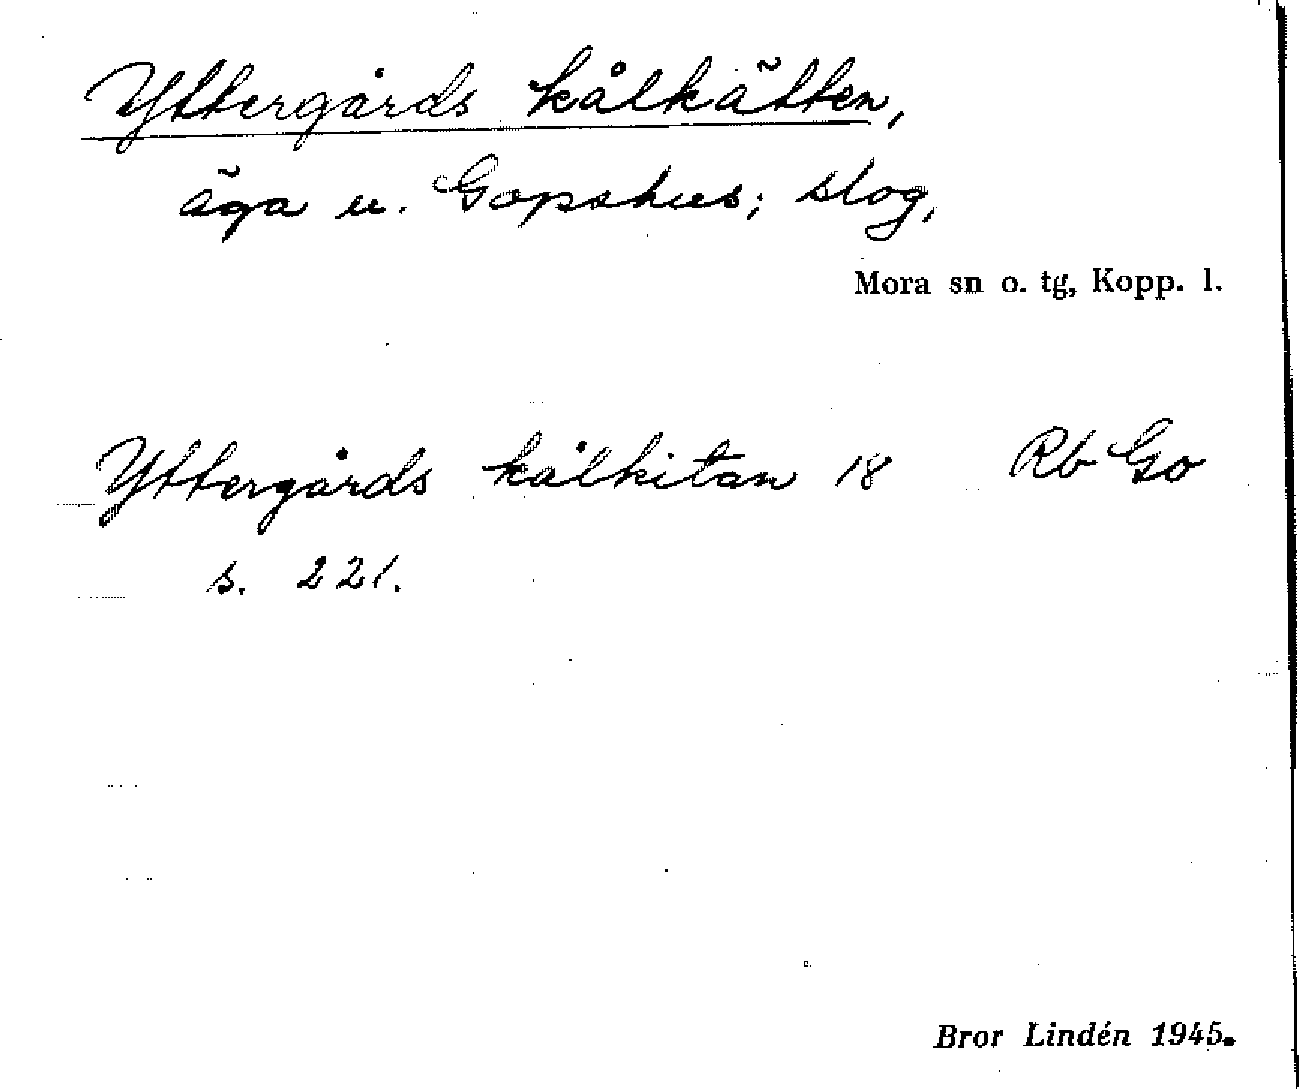 Yttergårds kålkätten,
äga u. Gopshus; slog,
Mora sn o. tg, Kopp. l.
Yttergårds kålkitan 18 Rb Go
s. 221.
Bror Lindén 1945.